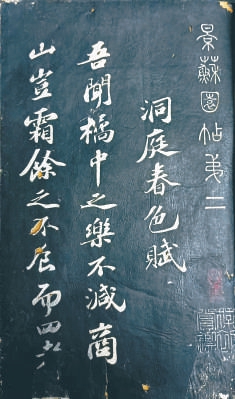 景蘇園帖弟二
洞庭春色賦
吾聞橘中之樂不減商
山豈霜餘之不食而四老